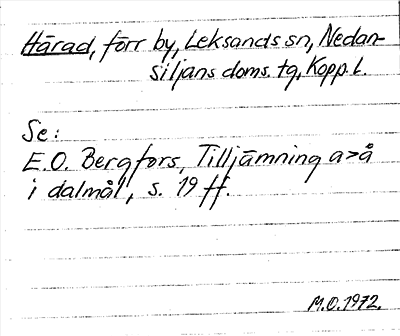 Härad, förr by, Leksands sn, Nedan-
siljans doms. tg, Kopp. l.
Se:
E.O. Bergfors, Tilljämning a>å
i dalmål, s. 19 ff.
M.O. 1972.